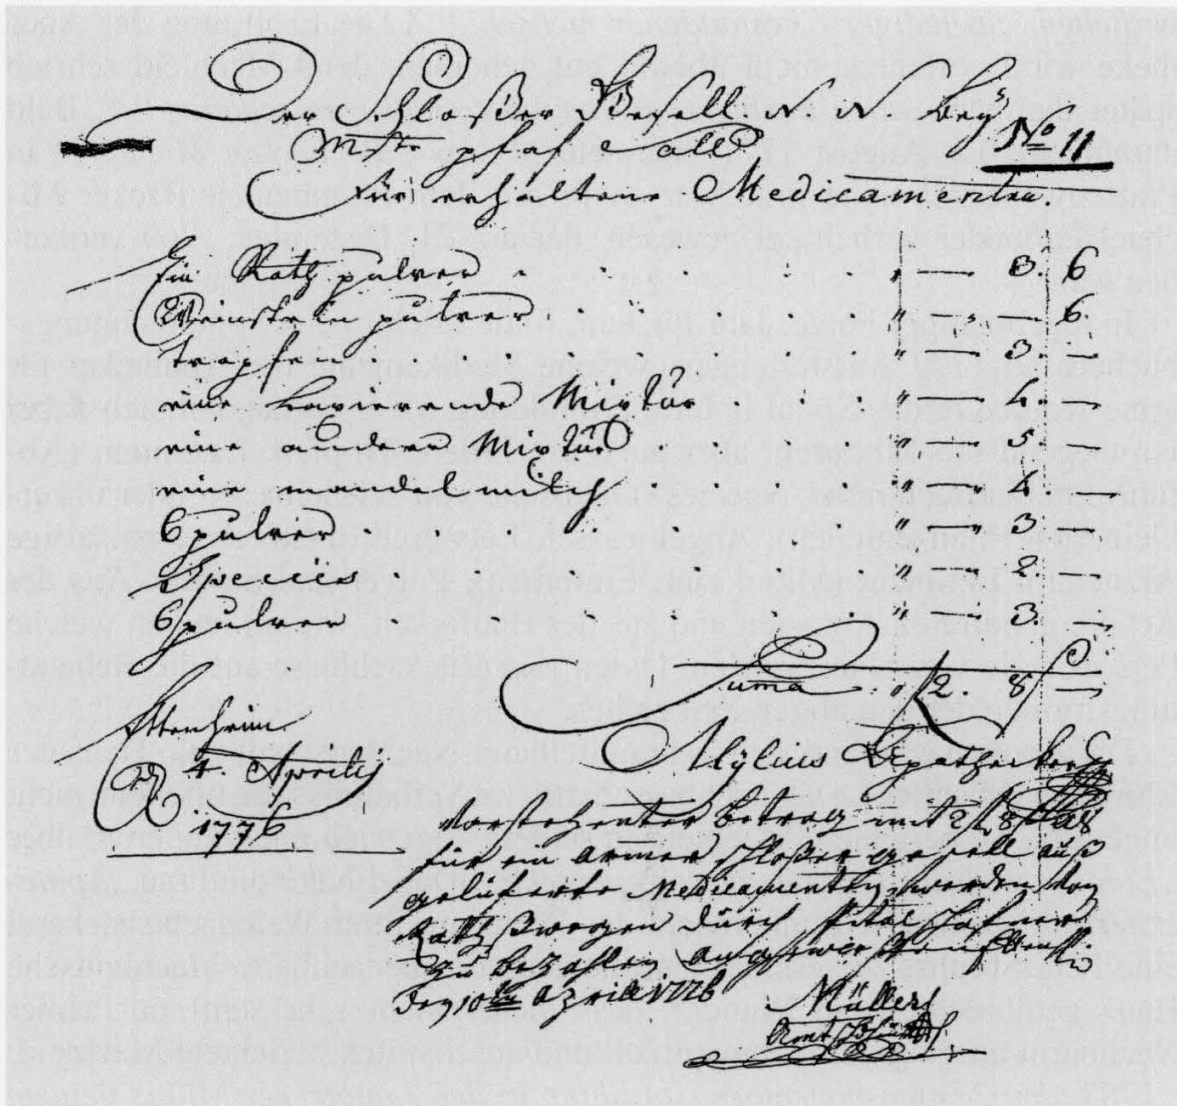 Der Schloßer Gesell N. N. bey
Mstr pfafe alld
No 11
Für erhaltene Medicamenten.
Ein Rath pulver . . . " — 3. 6
Weinstein pulver . . . " — " — 6.
trapfen . . . " — 3. —
eine laxierende Mixtur . . . " — 4. —
eine andere Mixtur . . . " — 5. —
eine mandelmilch . . . " — 4 —
6 pulver . . . " — 3 —
Species . . . " — 2. —
6 pulver . . . " — 3. —
Suma . " 2. 8 —
Ettenheim
4. Aprilis
1776
Mÿlius Apothecker
Vorstehenter betrag mit 2 f 8 als
für ein armen schloßer gesell auß
gelüferte Medicamenten, werden von
Rathß wegen durch spital schafner
zu bezahlen angewiesen
Den 10ten Aprill 1776
Müller